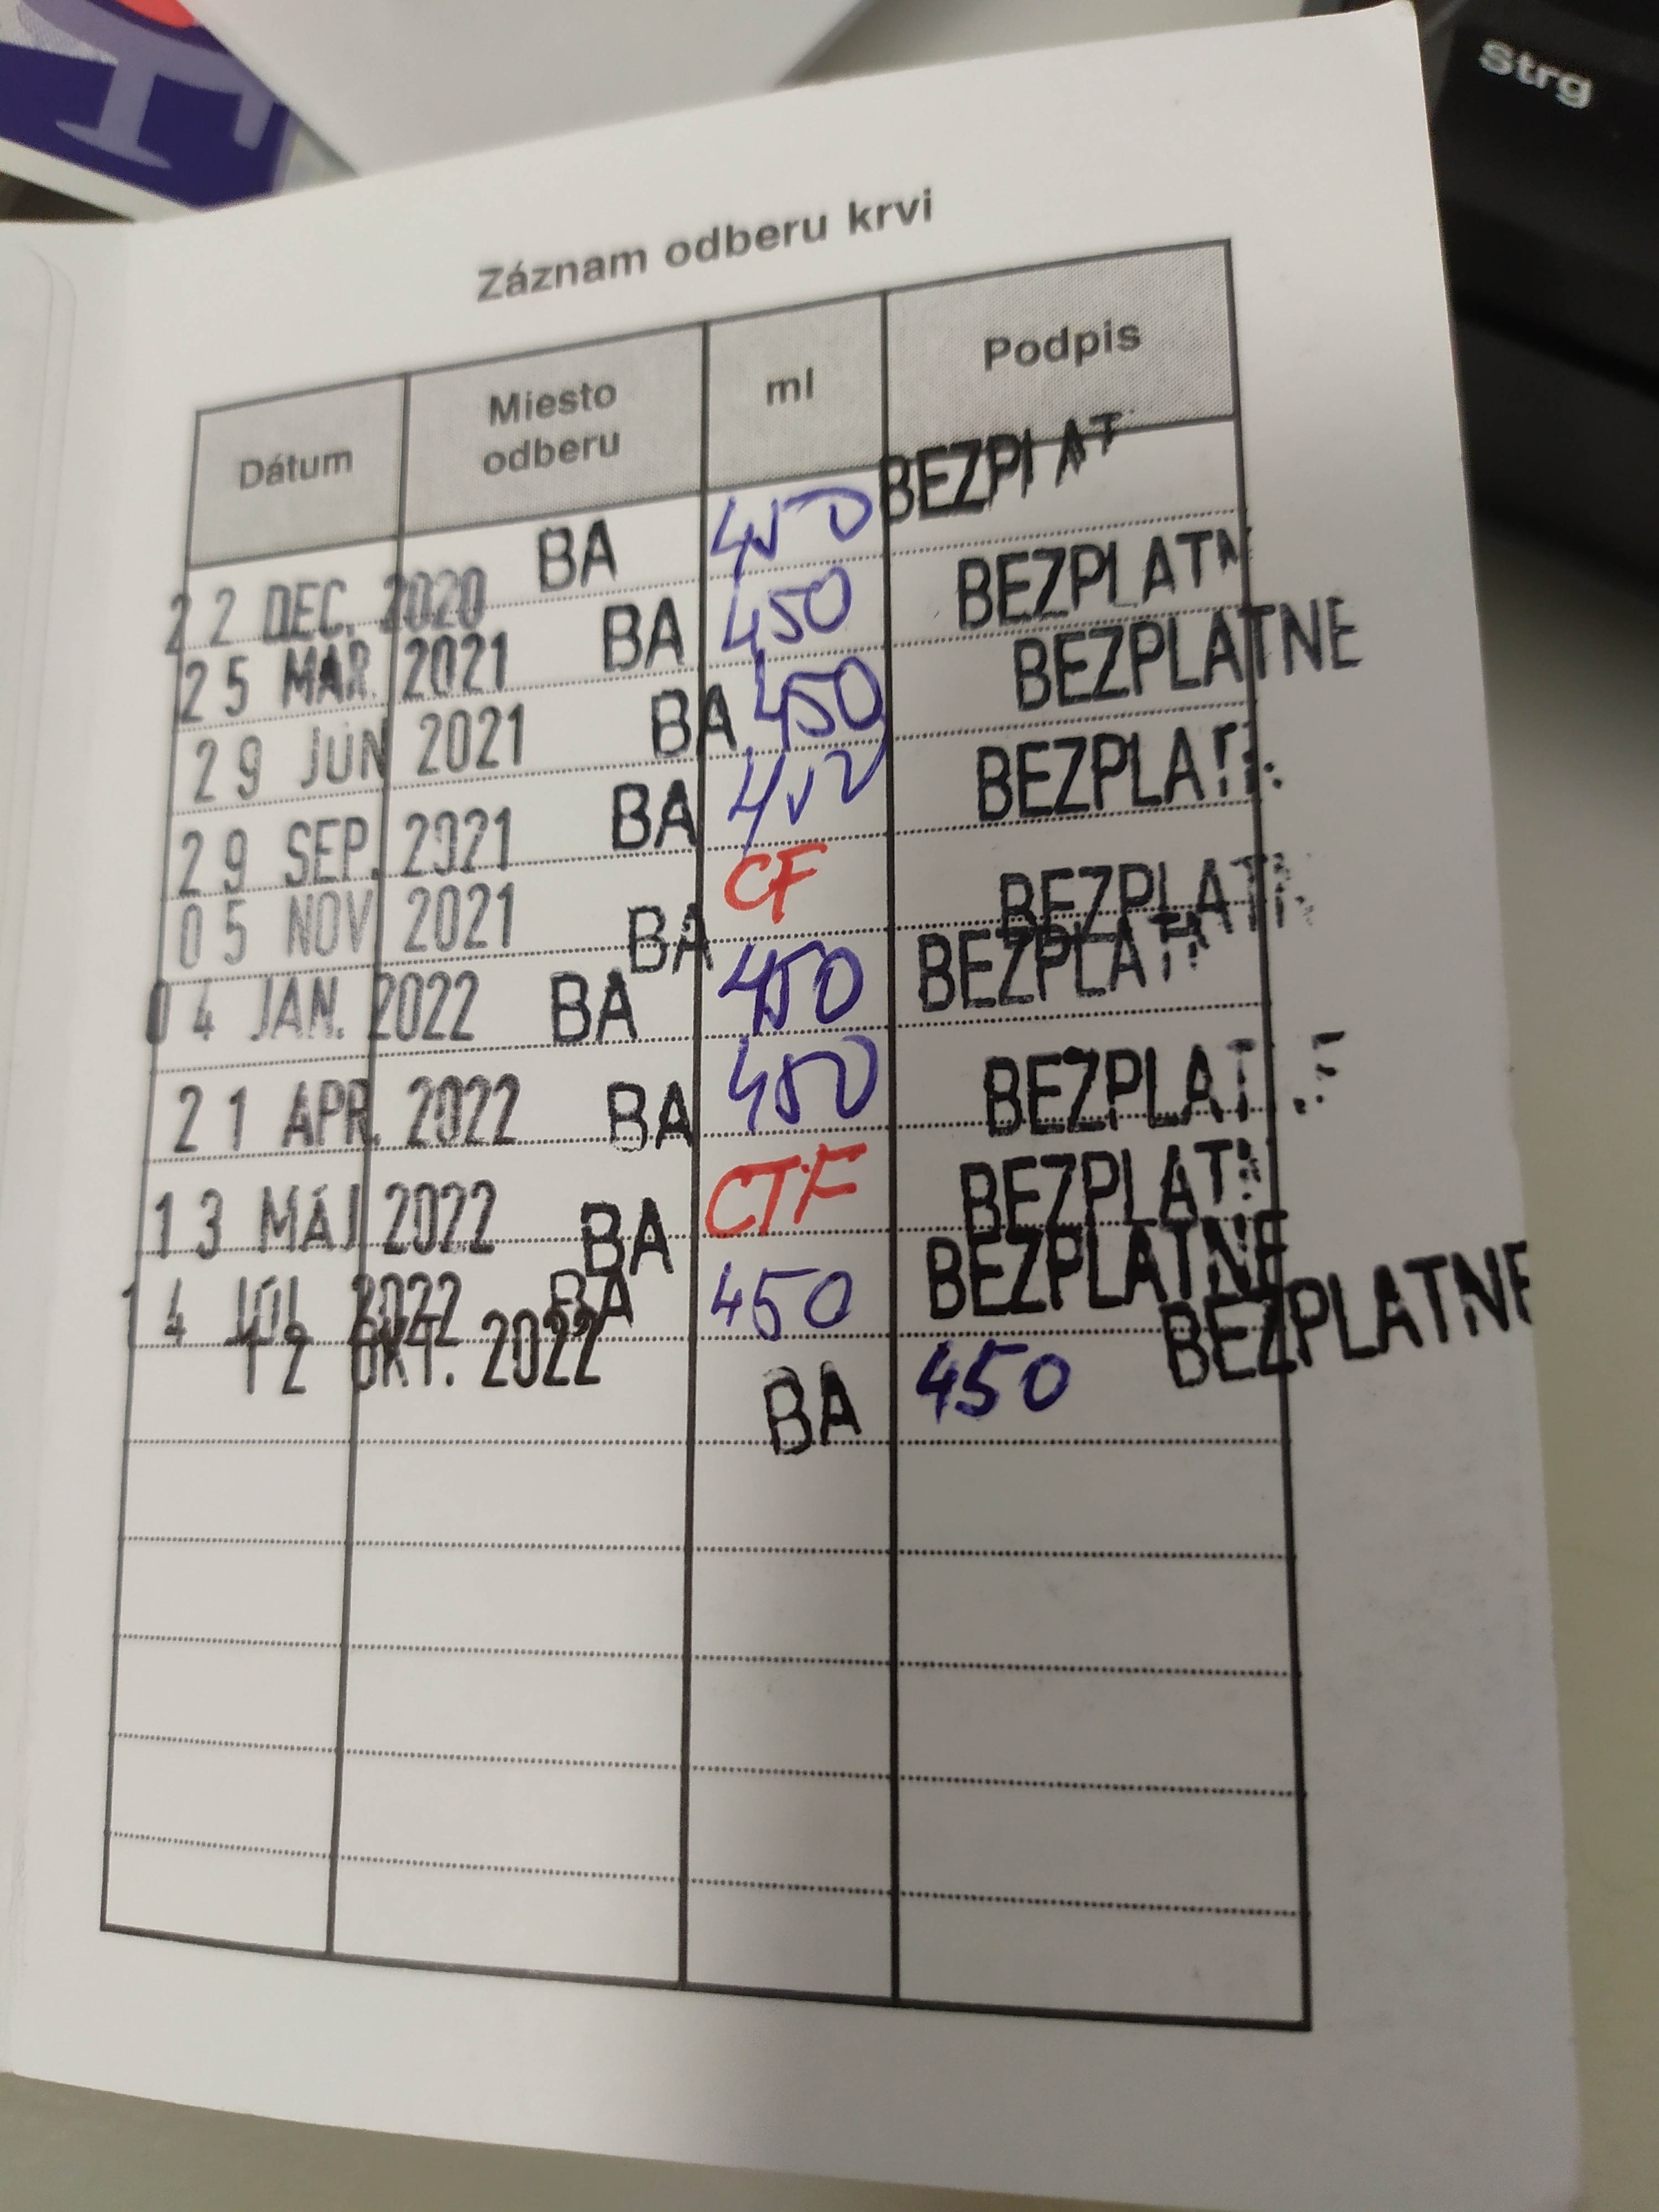 Strg
Záznam odberu krvi
Dátum Miesto odberu ml Podpis
22 DEC. 2020 BA 450 BEZPLAT
25 MAR. 2021 BA 450 BEZPLATN
29 JÚN 2021 BA 450 BEZPLATNE
29 SEP. 2021 BA 450 BEZPLATN
05 NOV 2021 BA CF BEZPLATN
04 JAN. 2022 BA 450 BEZPLATN
21 APR. 2022 BA 450 BEZPLAT E
13 MÁJ 2022 BA CTF BEZPLATN
14 JÚL 2022 BA 450 BEZPLATNE
12 OKT. 2022 BA 450 BEZPLATNE